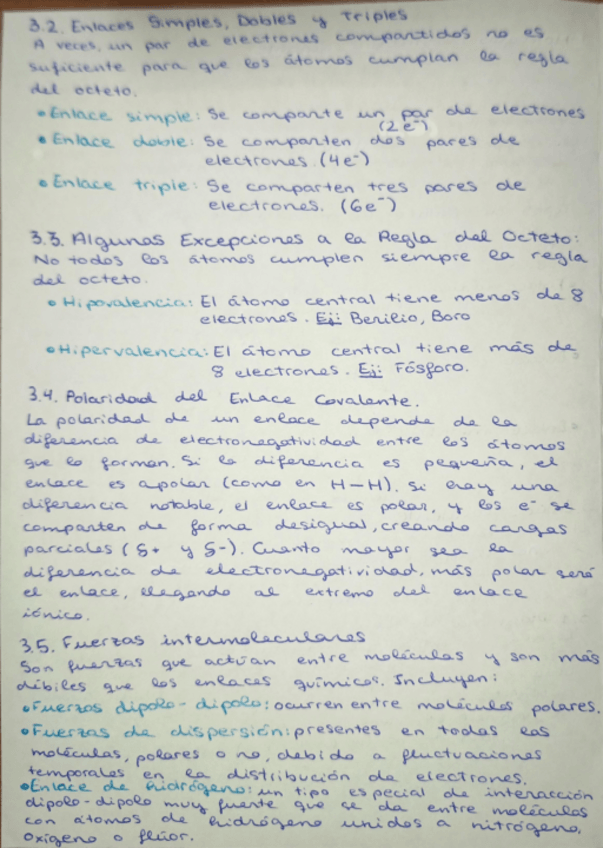 3.2. Enlaces Simples, Dobles y Triples
A veces, un par de electrones compartidos no es
suficiente para que los átomos cumplan la regla
del octeto.
• Enlace simple: Se comparte un par de electrones
(2e⁻)
• Enlace doble: Se comparten dos pares de
electrones. (4e⁻)
• Enlace triple: Se comparten tres pares de
electrones. (6e⁻)
3.3. Algunas Excepciones a la Regla del Octeto:
No todos los átomos cumplen siempre la regla
del octeto.
• Hipovalencia: El átomo central tiene menos de 8
electrones. Ej: Berilio, Boro
• Hipervalencia: El átomo central tiene más de
8 electrones. Ej: Fósforo.
3.4. Polaridad del Enlace Covalente.
La polaridad de un enlace depende de la
diferencia de electronegatividad entre los átomos
que lo forman. Si la diferencia es pequeña, el
enlace es apolar (como en H-H). Si hay una
diferencia notable, el enlace es polar, y los e⁻ se
comparten de forma desigual, creando cargas
parciales (δ+ y δ-). Cuanto mayor sea la
diferencia de electronegatividad, más polar será
el enlace, llegando al extremo del enlace
iónico.
3.5. Fuerzas intermoleculares
Son fuerzas que actúan entre moléculas y son más
débiles que los enlaces químicos. Incluyen:
• Fuerzas dipolo-dipolo: ocurren entre moléculas polares.
• Fuerzas de dispersión: presentes en todas las
moléculas, polares o no, debido a fluctuaciones
temporales en la distribución de electrones.
• Enlace de hidrógeno: un tipo especial de interacción
dipolo-dipolo muy fuerte que se da entre moléculas
con átomos de hidrógeno unidos a nitrógeno,
oxígeno o flúor.